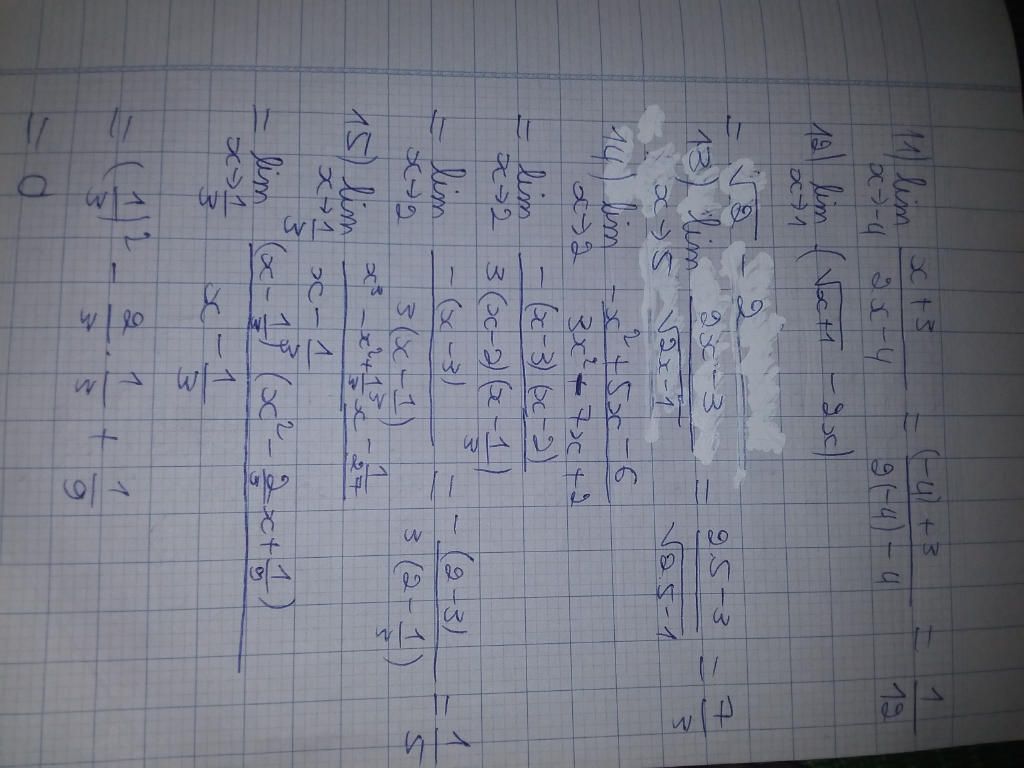 11) lim x→-4 (x+3)/(2x-4) = ((-4)+3)/(2(-4)-4) = 1/12
12) lim x→1 (√x+1 - 2x)
= √2 - 2
13) lim x→5 (2x-3)/√2x-1 = (2·5-3)/√2·5-1 = 7/3
14) lim x→2 (-x²+5x-6)/(3x²-7x+2)
= lim x→2 (-(x-3)(x-2))/(3(x-2)(x-1/3))
= lim x→2 (-(x-3))/(3(x-1/3)) = (-(2-3))/(3(2-1/3)) = 1/5
15) lim x→1/3 (x³-x²+1/3x-1/27)/(x-1/3)
= lim x→1/3 ((x-1/3)(x²-2/3x+1/9))/(x-1/3)
= (1/3)² - 2/3·1/3 + 1/9
= 0